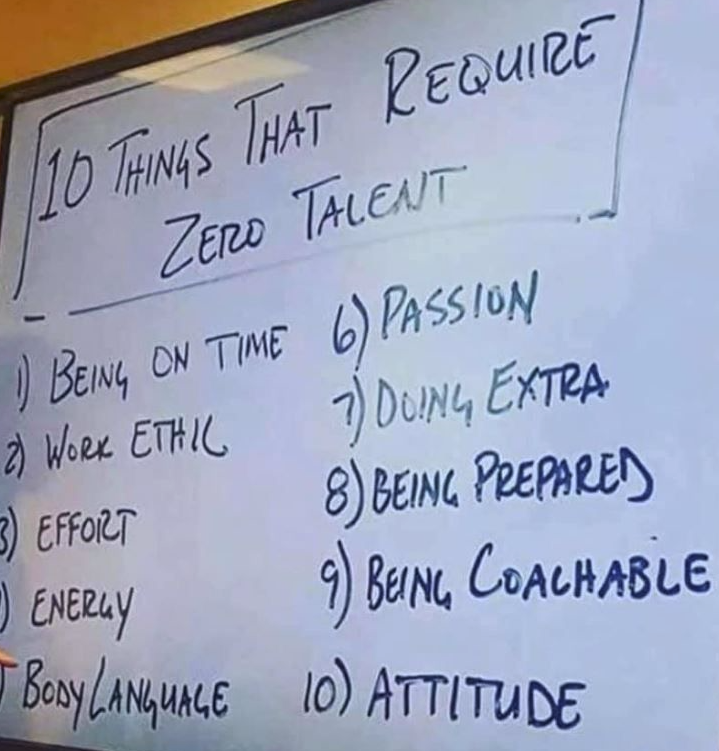 10 THINGS THAT REQUIRE
ZERO TALENT
1) BEING ON TIME
2) WORK ETHIC
3) EFFORT
) ENERGY
BODY LANGUAGE
6) PASSION
7) DOING EXTRA
8) BEING PREPARED
9) BEING COACHABLE
10) ATTITUDE